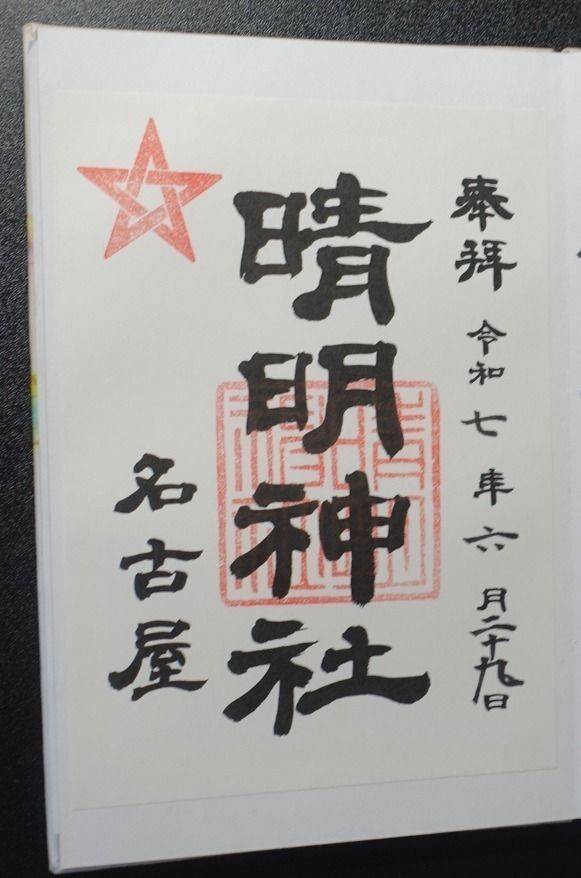 奉拝 令和七年六月二十九日
晴明神社
名古屋